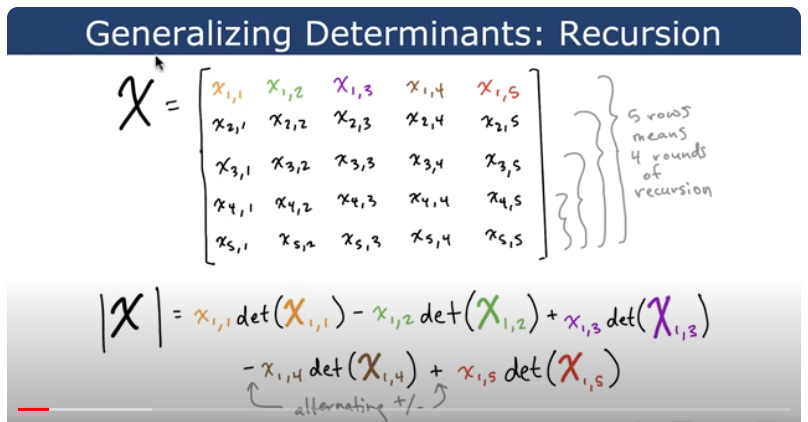 Generalizing Determinants: Recursion
X = [ x₁,₁ x₁,₂ x₁,₃ x₁,₄ x₁,₅
x₂,₁ x₂,₂ x₂,₃ x₂,₄ x₂,₅
x₃,₁ x₃,₂ x₃,₃ x₃,₄ x₃,₅
x₄,₁ x₄,₂ x₄,₃ x₄,₄ x₄,₅
x₅,₁ x₅,₂ x₅,₃ x₅,₄ x₅,₅ ]
5 rows
means
4 rounds
of
recursion
|X| = x₁,₁ det(X₁,₁) - x₁,₂ det(X₁,₂) + x₁,₃ det(X₁,₃)
- x₁,₄ det(X₁,₄) + x₁,₅ det(X₁,₅)
alternating +/-